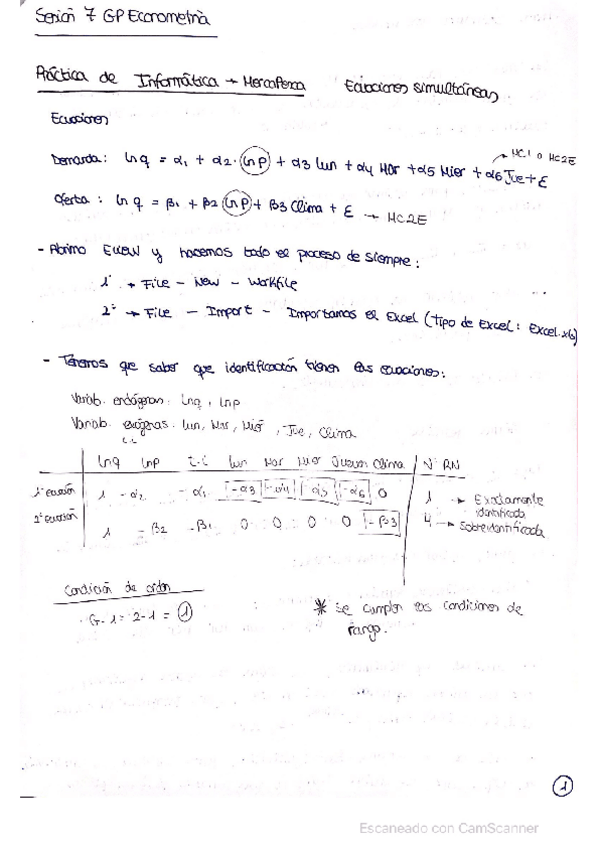 Sesión 7 GP Econometría
Práctica de Informática → MercaPesca Ecuaciones simultáneas
Ecuaciones
MC.I o MC2E
Demanda: lnq = α1 + α2·lnp + α3 Lun + α4 Mar + α5 Mier + α6 Jue + ε
Oferta: lnq = β1 + β2 lnp + β3 Clima + ε → MC2E
- Abrimo EView y hacemos todo el proceso de siempre:
1º → File - New - Workfile
2º → File - Import - Importamos el Excel (tipo de Excel: Excel.xls)
- Tenemos que saber que identificación tienen las ecuaciones:
Variab. endógenas: lnq, lnp
Variab. exógenas: Lun, Mar, Mier, Jue, Clima
t.i
lnq lnp t.i Lun Mar Mier Jueves Clima Nº RN
1ª ecuación 1 -α2 -α1 -α3 -α4 -α5 -α6 0 1 → Exactamente identificada
2ª ecuación 1 -β2 -β1 0 0 0 0 -β3 4 → Sobreidentificada
Condición de orden
G-1 = 2-1 = 1
* Se cumplen las condiciones de
rango.
1
Escaneado con CamScanner